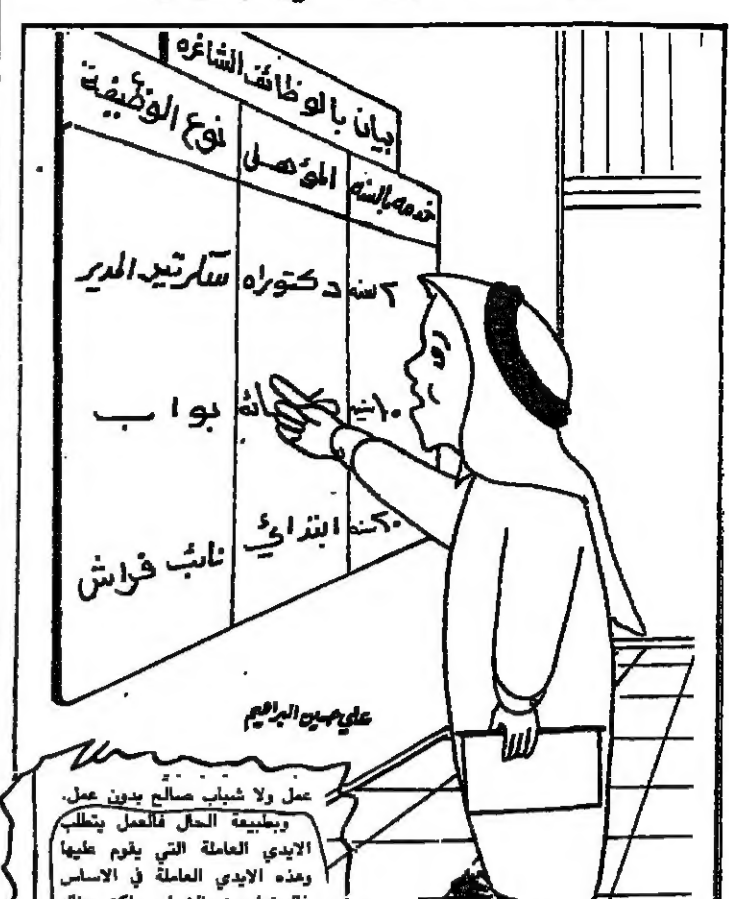 بيان بالوظائف الشاغره
نوع الوظيفة المؤهل خدمه بالسنه
سكرتير المدير دكتوراه ٢ سنه
بواب ١٠ سنه
نائب فراش ابتدائي ٢٠ سنه
علي حسين البراهيم
عمل ولا شباب صالح بدون عمل.
وبطبيعة الحال فالعمل يتطلب
الايدي العاملة التي يقوم عليها
وهذه الايدي العاملة في الاساس